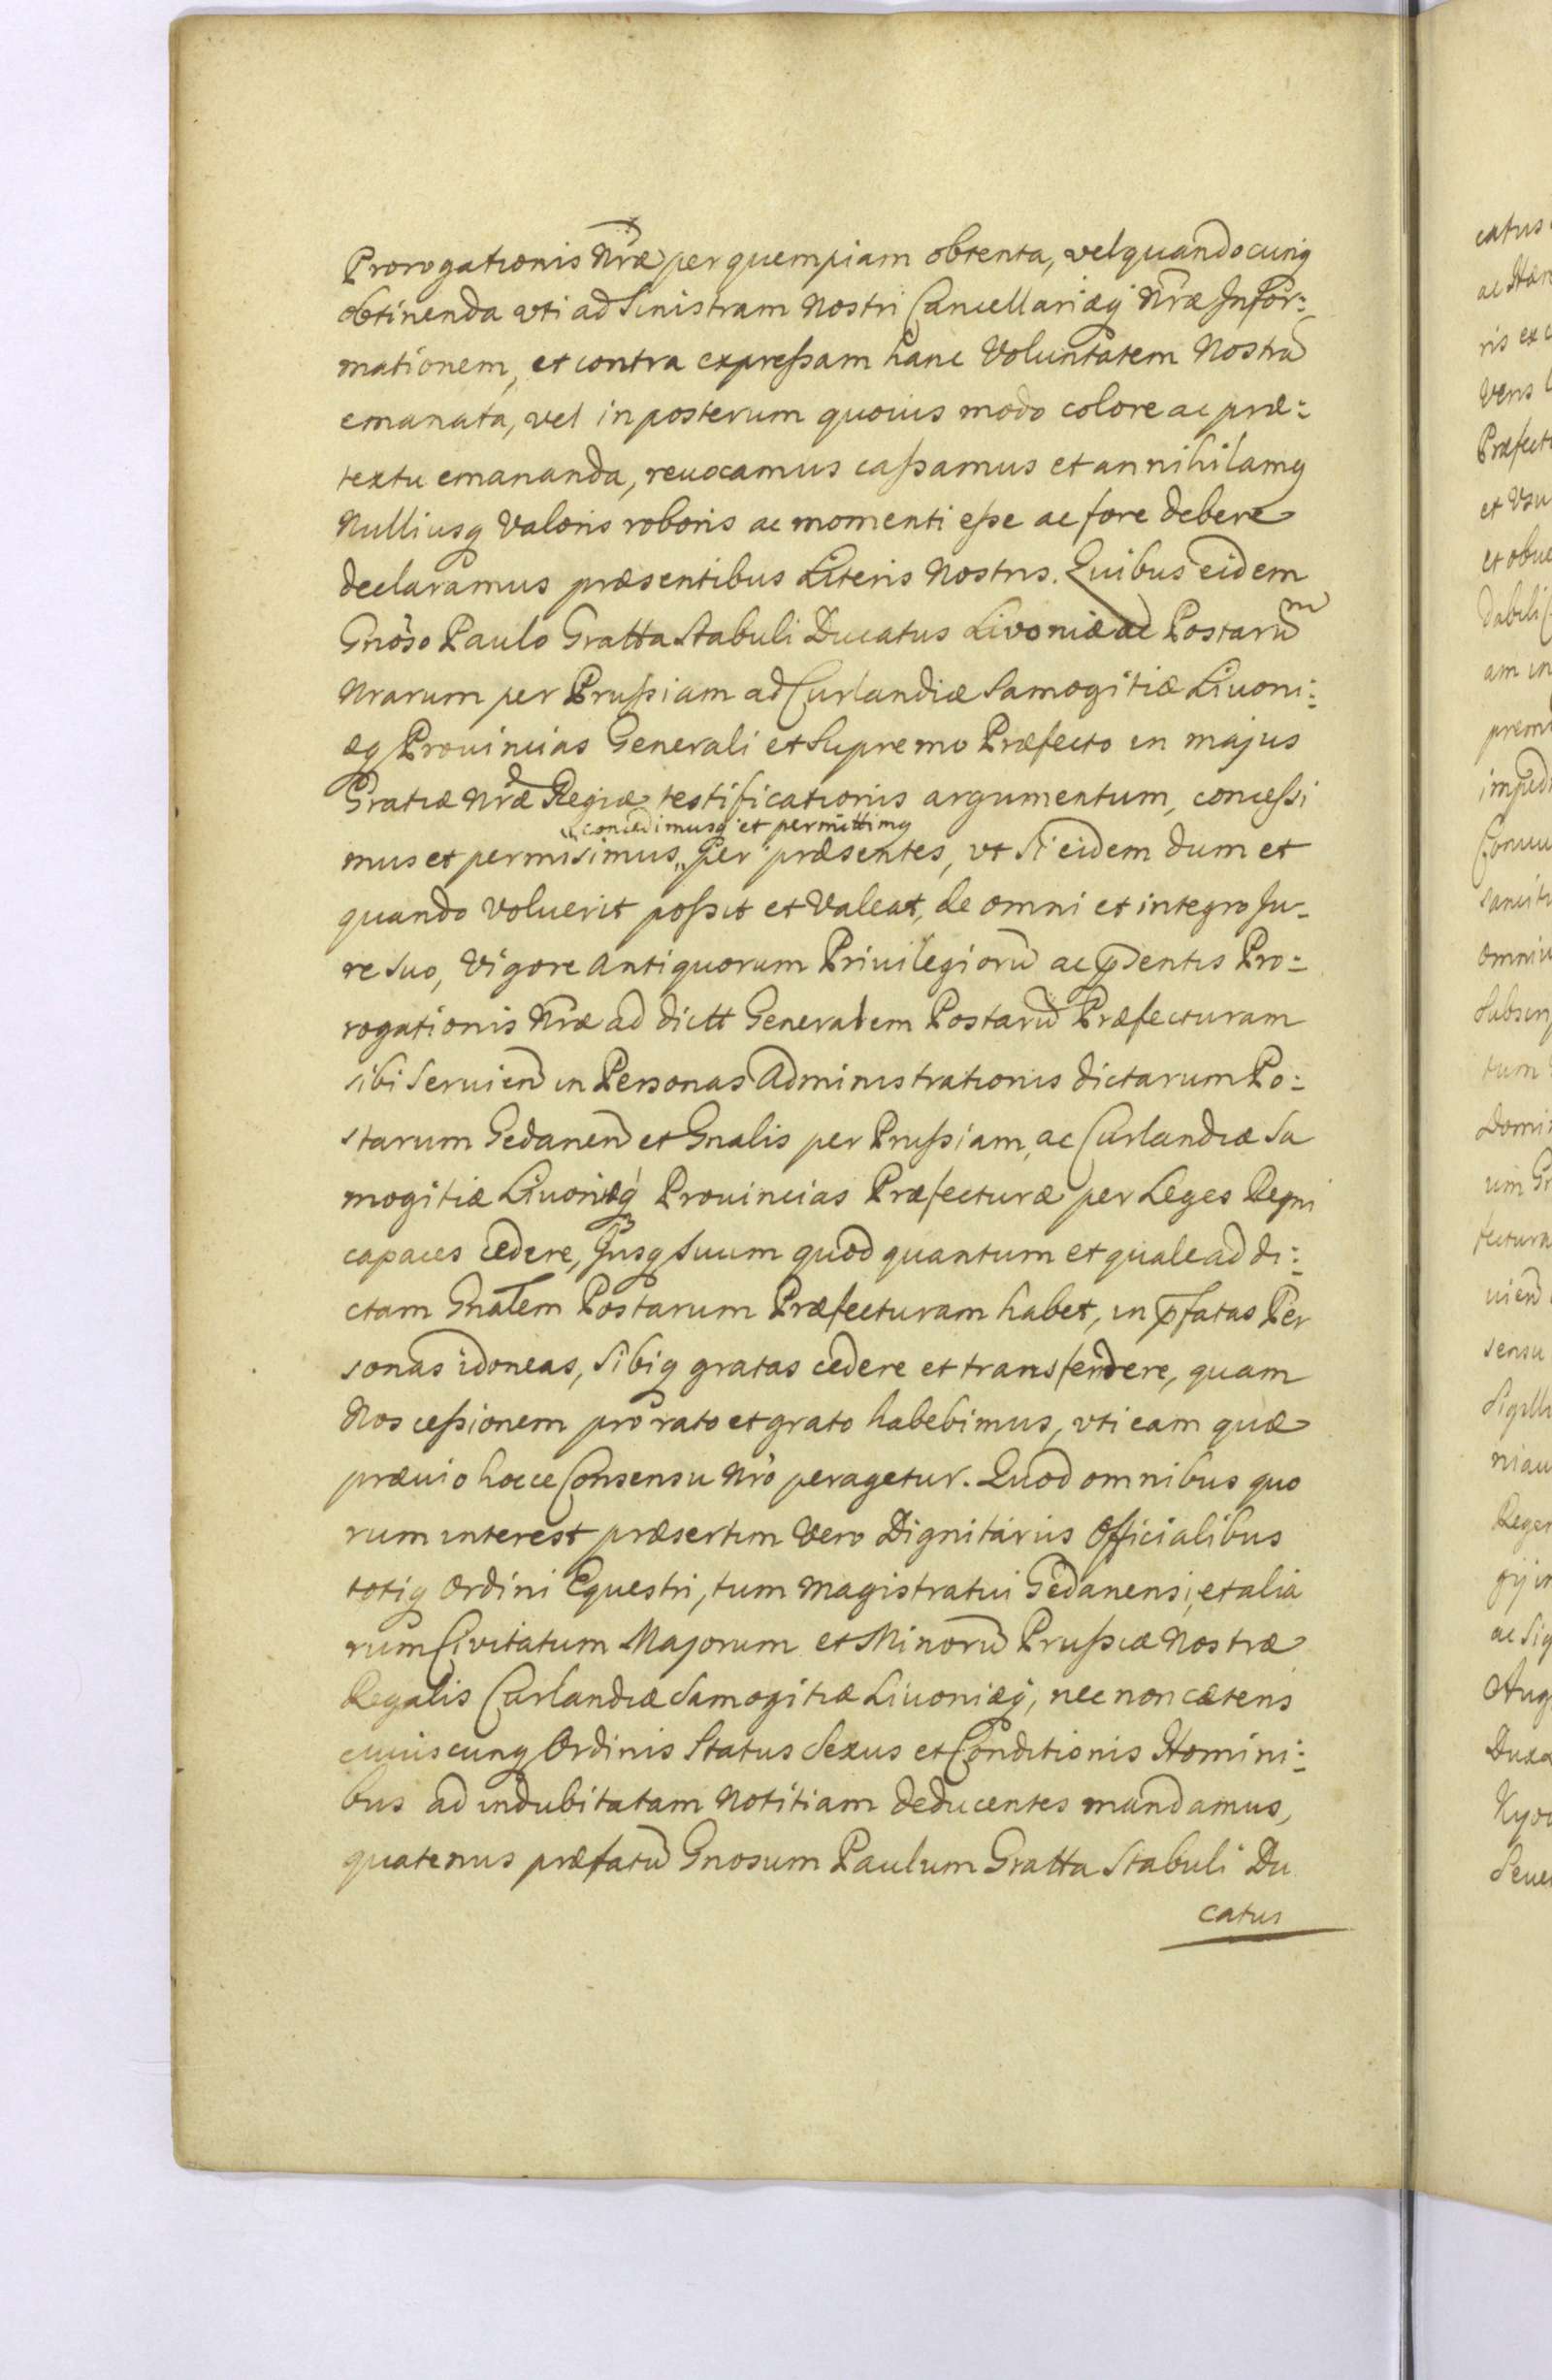 Prorogationis Nr̃æ per quempiam obtenta, vel quandocunq
obtinenda vti ad Sinistram Nostri Cancellariæq Nr̃æ Infor:
mationem, et contra expreſsam hanc Voluntatem Nostrã
emanata, vel in posterum quovis modo colore ac præ:
textu emananda, reuocamus caſsamus et annihilamq
Nulliusq Valoris roboris ac momenti eſse ac fore debere
declaramus præsentibus Literis Nostris. Quibus eidem
Gnõso Paulo Gratta Stabuli Ducatus Livoniæ ac Postarũm
Nrarum per Pruſsiam ad Curlandiæ Samogitiæ Liuoni:
æq Prouincias Generali et Supremo Præfecto in majus
Gratiæ Nr̃æ Regiæ testificationis argumentum, conceſsi
concedimusq et permittimq
mus et permisimus, per præsentes, vt Si eidem dum et
quando Voluerit poſsit et Valeat, de omni et integro Ju-
re Suo, Vigore Antiquorum Priuilegiorũ ac p̃sentis Pro:
rogationis Nr̃æ ad dictt Generalem Postarũ Præfecturam
sibi Seruien̄ in Personas Administrationis dictarum Po:
starum Gedanen̄ et Gnalis per Pruſsiam, ac Curlandiæ Sa
mogitiæ Liuoniæq Prouincias Præfecturæ per Leges Regni
capaces cedere, Jusq Suum quod quantum et quale ad di:
ctam Gnalem Postarum Præfecturam habet, in p̃fatas Per
sonas idoneas, Sibiq gratas cedere et transfendere, quam
Nos ceſsionem pro rato et grato habebimus, vti eam quæ
præuio hocce Consensu Nrõ peragetur. Quod omnibus quo
rum interest præsertim Vero Dignitariis Officialibus
totiq Ordini Equestri, tum Magistratui Gedanensi, et alia
rum Civitatum Majorum et Minorũ Pruſsiæ Nostræ
Regalis Curlandiæ Samogitiæ Liuoniæq, nec non cæteris
cuiuscunq Ordinis Status Sexus et Conditionis Homini:
bus ad indubitatam Notitiam deducentes mandamus,
quatenus præfatũ Gnosum Paulum Gratta Stabuli Du
catus
catus
ris
Vens
Præfect
et Vsu
et obue
dabili
am in
impedi
omniu
Subscri
tum
Domi
fectura
uien̄
sensu
Sigilli
niau
Reger
ac Sig
Aug
Kyov
Seue